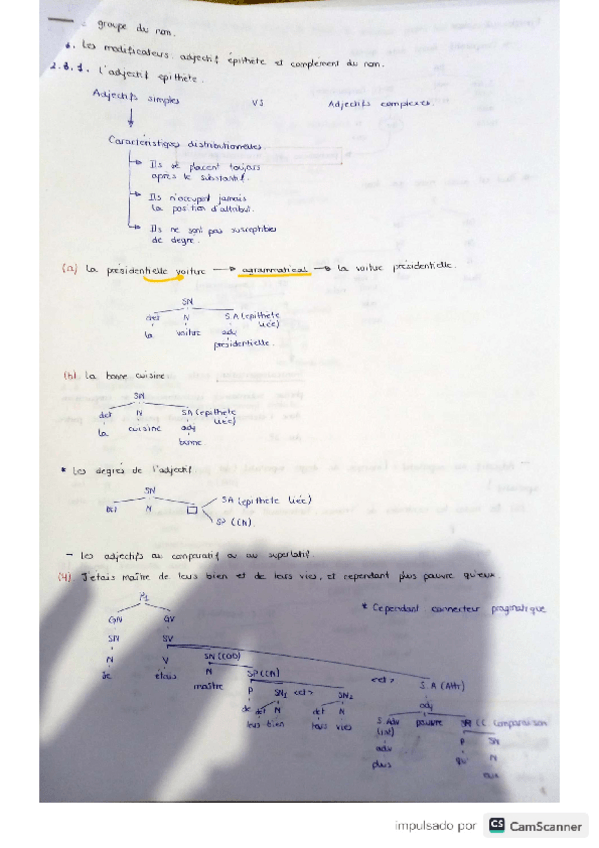 groupe du nom.
Les modificateurs: adjectif épithète et complément du nom.
2.3.1. l'adjectif épithète.
Adjectifs simples vs Adjectifs complexes.
Caractéristiques distributionnelles.
Ils se placent toujours
après le substantif.
Ils n'occupent jamais
la position d'attribut.
Ils ne sont pas susceptibles
de degré.
(a) La présidentielle voiture → agrammatical → la voiture présidentielle.
SN
det N SA (épithète
liée)
la voiture adj
présidentielle.
(b) La bonne cuisine.
SN
det N SA (épithète
liée)
la cuisine adj
bonne
* Les degrés de l'adjectif
SN
Det N SA (épithète liée)
SP (CN)
- Les adjectifs au comparatif ou au superlatif.
(4) J'étais maître de leurs bien et de leurs vies, et cependant plus pauvre qu'eux.
P1
* Cependant connecteur pragmatique
GN GV
SN SV
N V SN (COD) <et> S.A (Attr)
Je étais N SP (CN) adj
maître P SN1 <et> SN2
de det N det N
leurs bien leurs vies
S Adv pauvre (C. Comparaison
adv P SN
plus qu' N
eux
impulsado por CS CamScanner